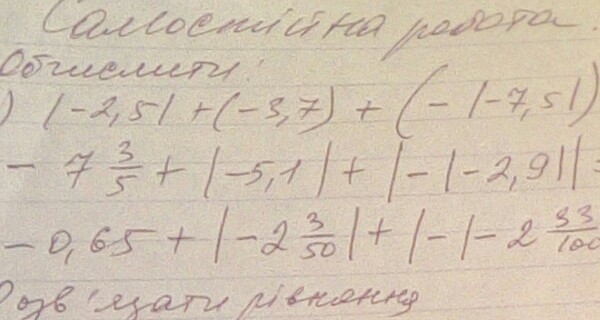 Самостійна работа.
Обчислити:
) |-2,5| + (-3,7) + (-|-7,5|)
- 7 3/5 + |-5,1| + |-|-2,9|| =
- 0,65 + |-2 3/50| + |-|-2 33/100
Розв'язати рівняння